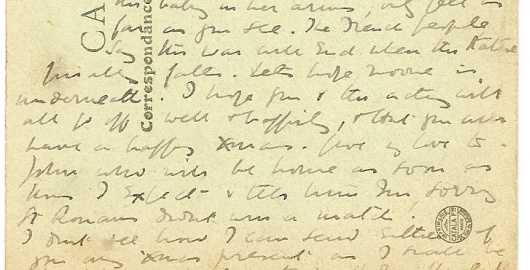 this baby in her arms, only fell as
far as you see. The French people
say this war will End when this statue
finally falls. Lets hope noone is
underneath. I hope you & the acting will
all go off well & happily, & that you will
have a happy Xmas. Give my love to
John who will be home as soon as
this I Expect & tell him I'm sorry
St Ronans didnt win a match!
I dont see how I can send Either of
you any Xmas present as I shall be
CA
Correspondance